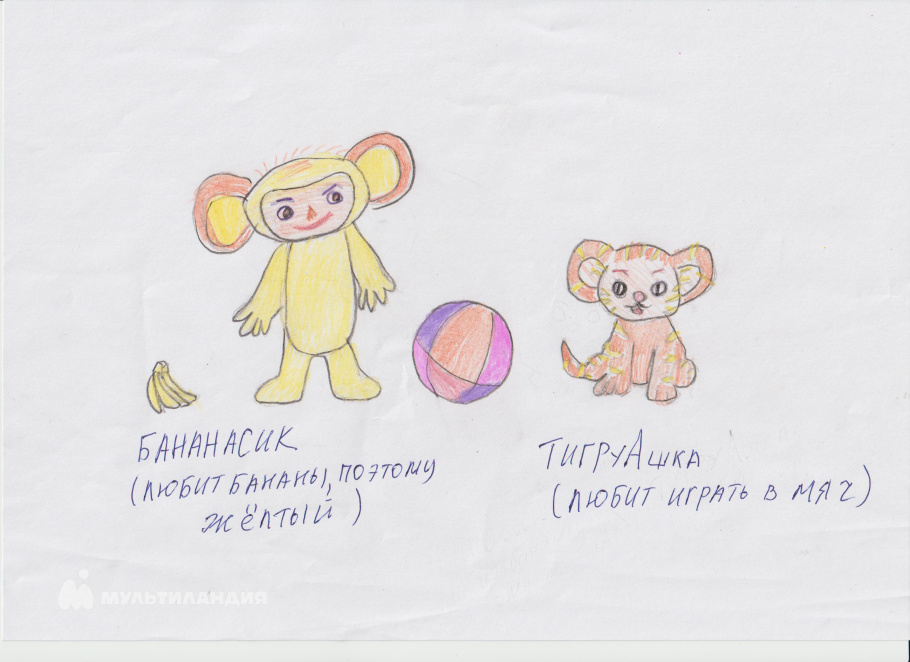 БАНАНАСИК
(ЛЮБИТ БАНАНЫ, ПОЭТОМУ
ЖЁЛТЫЙ)
ТИГРУАшкА
(ЛЮБИТ ИГРАТЬ В МЯЧ)
МУЛЬТИЛАНДИЯ